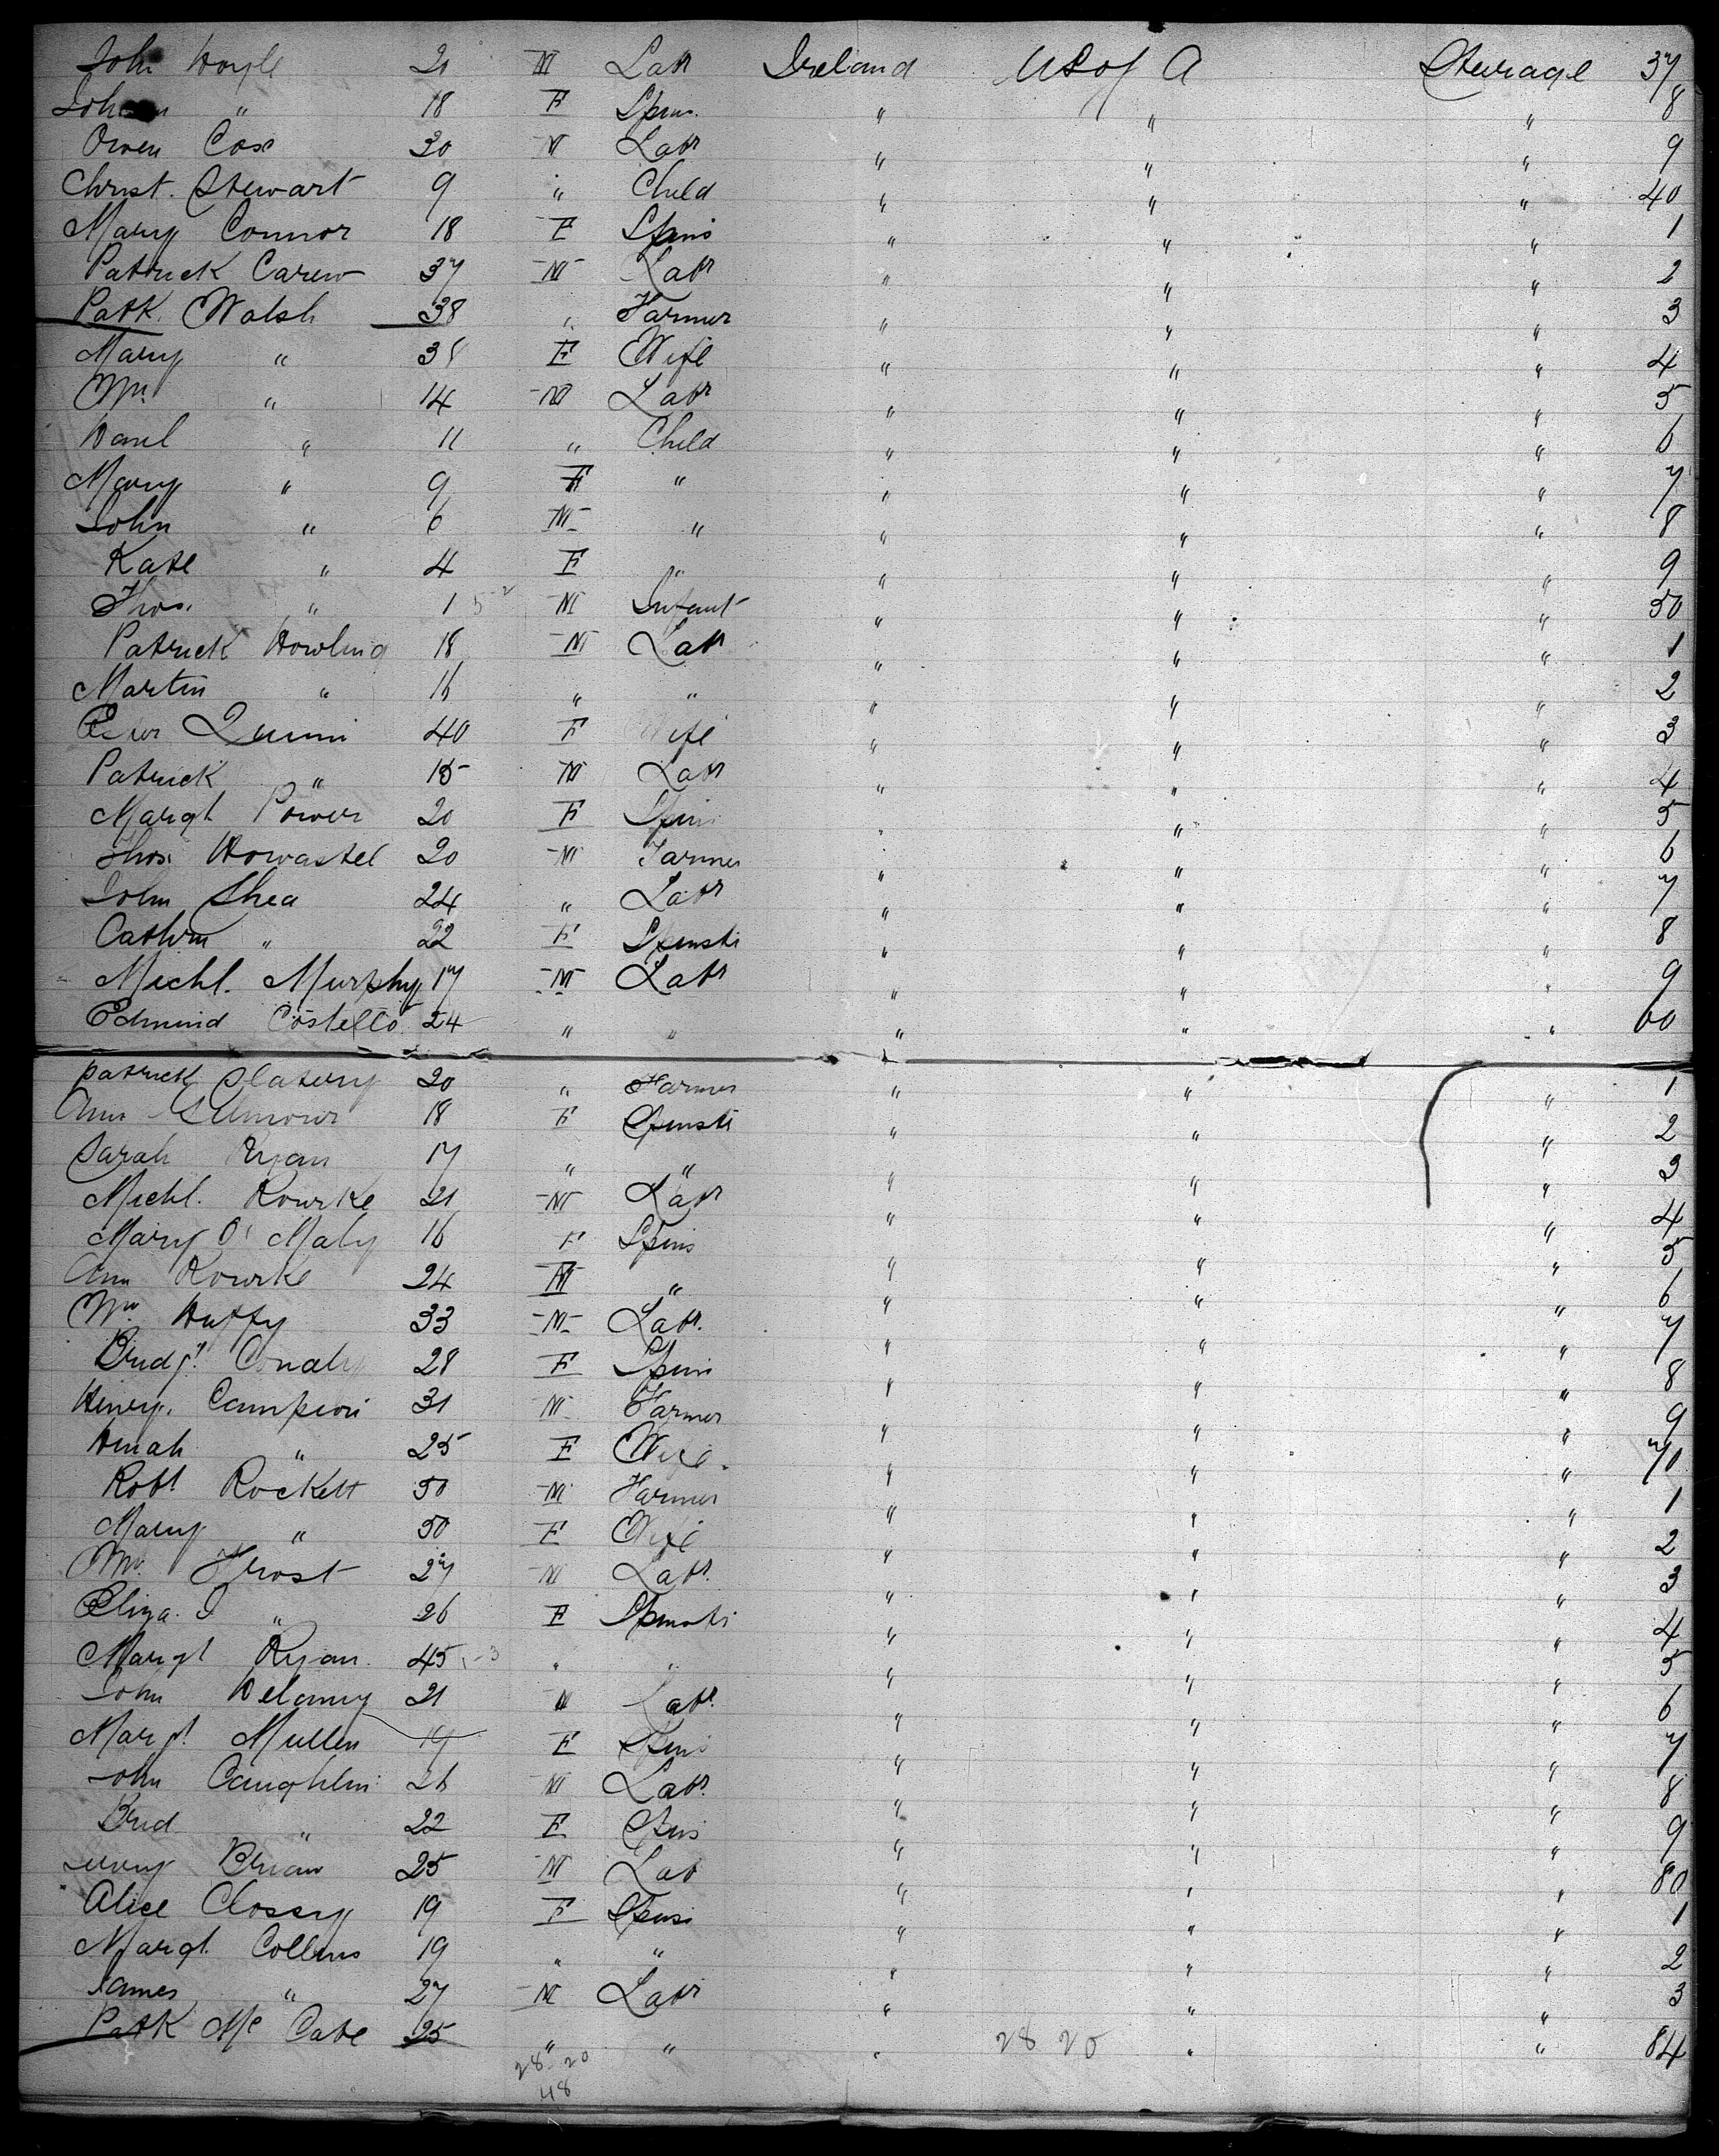 John 20 M Labr Ireland US of A Steerage 37
" 18 F Spins. " " " 8
Owen Cox 30 M Labr " " " 9
Christ. Stewart 9 " Child " " " 40
Mary Connor 18 F Spins " " " 1
Patrick Carew 37 M Labr " " " 2
Patk. Walsh 38 " Farmer " " " 3
Mary " 38 F Wife " " " 4
Wm " 14 M Labr " " " 5
Danl " 11 " Child " " " 6
Mary " 9 F " " " " 7
John " 6 M " " " " 8
Kate " 4 F " " " " 9
Thos. " 1 M Infant " " " 50
Patrick Howling 18 M Labr " " " 1
Martin " 16 " " " " " 2
Quinn 40 F Wife " " " 3
Patrick " 15 M Labr " " " 4
Margt Power 20 F Spins " " " 5
Thos. 20 M Farmer " " " 6
John Shea 24 " Labr " " " 7
" 22 F Spinstr " " " 8
Michl. Murphy 17 M Labr " " " 9
Edmund Costello 24 " " " " " 60
Patrick Slatery 20 " Farmer " " " 1
Ann 18 F Spinstr " " " 2
Sarah Ryan 17 " " " " " 3
Michl. Rourke 21 M Labr " " " 4
Mary O' Maly 16 F Spins " " " 5
Ann Rourke 24 " " " " 6
Wm 33 M Labr. " " " 7
Bridgt. 28 F Spins " " " 8
Henry. Campion 31 M Farmer " " " 9
" 25 F Wife. " " " 70
Robt Rockett 50 M Farmer " " " 1
Mary " 50 F Wife " " " 2
Wm. Frost 27 M Labr. " " " 3
Eliza. J " 26 F Spinstr " " " 4
Margt Ryan. 45 " " " " " 5
John Delaney 21 M Labr. " " " 6
Margt. Mullen 19 F Spins " " " 7
John Caughlin 26 M Labr. " " " 8
Brid " 22 F Spins " " " 9
Brian 25 M Lab " " " 80
Alice Clossy 19 F Spins " " " 1
Margt. Collins 19 " " " " " 2
James " 27 M Labr " " " 3
Patk Mc Cabe 25 " " " " " 84
28 20 28 20
48